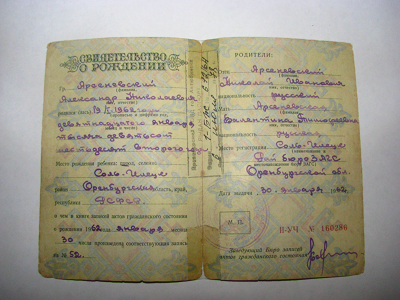 СВИДЕТЕЛЬСТВО
О РОЖДЕНИИ
Гр. Арсеньевский
Александр Николаевич
имя, отчество
родился (лась) 19/I 1962 года
девятнадцатого января
тысяча девятьсот
шестьдесят второго года
Место рождения: город, селение
Соль-Илецк
район
Оренбургская область, край,
республика
РСФСР
о чем в книге записей актов гражданского состояния
о рождении 1962 года января месяца
30 числа произведена соответствующая запись
за № 52.
РОДИТЕЛИ:
Арсеньевский
Николай Иванович
имя, отчество
русский
Арсеньевская
Валентина Григорьевна
имя, отчество
русская
Место регистрации
Соль-Илецк
Рай бюро ЗАГС
Оренбургской обл.
Дата выдачи 30 января 1962
М. П.
II-УЧ № 160280
Заведующий Бюро записей
актов гражданского состояния